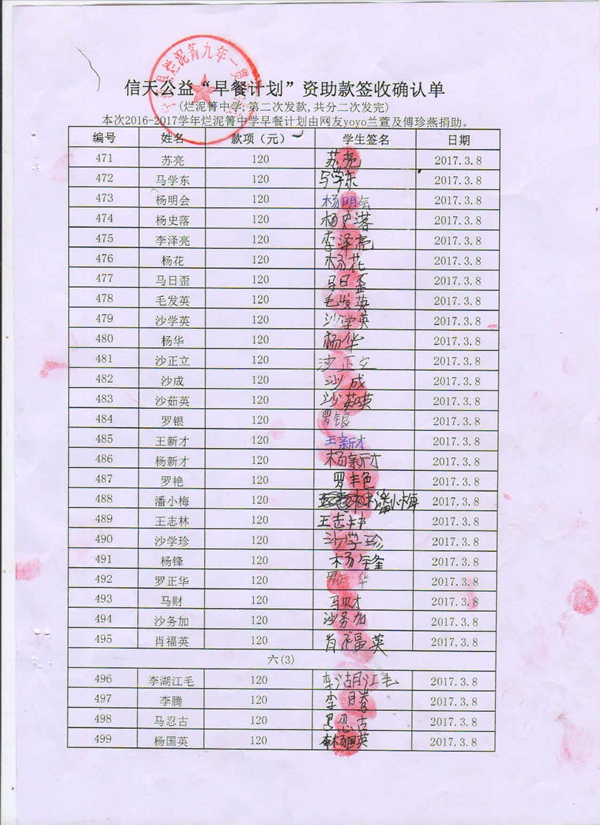 信天公益“早餐计划”资助款签收确认单
(烂泥箐中学,第二次发款,共分二次发完)
本次2016-2017学年烂泥箐中学早餐计划由网友yoyo兰萱及傅珍燕捐助。
编号 姓名 款项（元） 学生签名 日期
471 苏亮 120 苏亮 2017.3.8
472 马学东 120 马学东 2017.3.8
473 杨明会 120 杨明会 2017.3.8
474 杨史落 120 杨史落 2017.3.8
475 李泽亮 120 李泽亮 2017.3.8
476 杨花 120 杨花 2017.3.8
477 马日歪 120 马日歪 2017.3.8
478 毛发英 120 毛发英 2017.3.8
479 沙学英 120 沙学英 2017.3.8
480 杨华 120 杨华 2017.3.8
481 沙正立 120 沙正立 2017.3.8
482 沙成 120 沙成 2017.3.8
483 沙茹英 120 沙茹英 2017.3.8
484 罗银 120 罗银 2017.3.8
485 王新才 120 王新才 2017.3.8
486 杨新才 120 杨新才 2017.3.8
487 罗艳 120 罗艳 2017.3.8
488 潘小梅 120 潘小梅 2017.3.8
489 王志林 120 王志林 2017.3.8
490 沙学珍 120 沙学珍 2017.3.8
491 杨锋 120 杨锋 2017.3.8
492 罗正华 120 2017.3.8
493 马财 120 马财 2017.3.8
494 沙务加 120 沙务加 2017.3.8
495 肖福英 120 肖福英 2017.3.8
六(3)
496 李湖江毛 120 李湖江毛 2017.3.8
497 李腾 120 李腾 2017.3.8
498 马忍古 120 马忍古 2017.3.8
499 杨国英 120 杨国英 2017.3.8